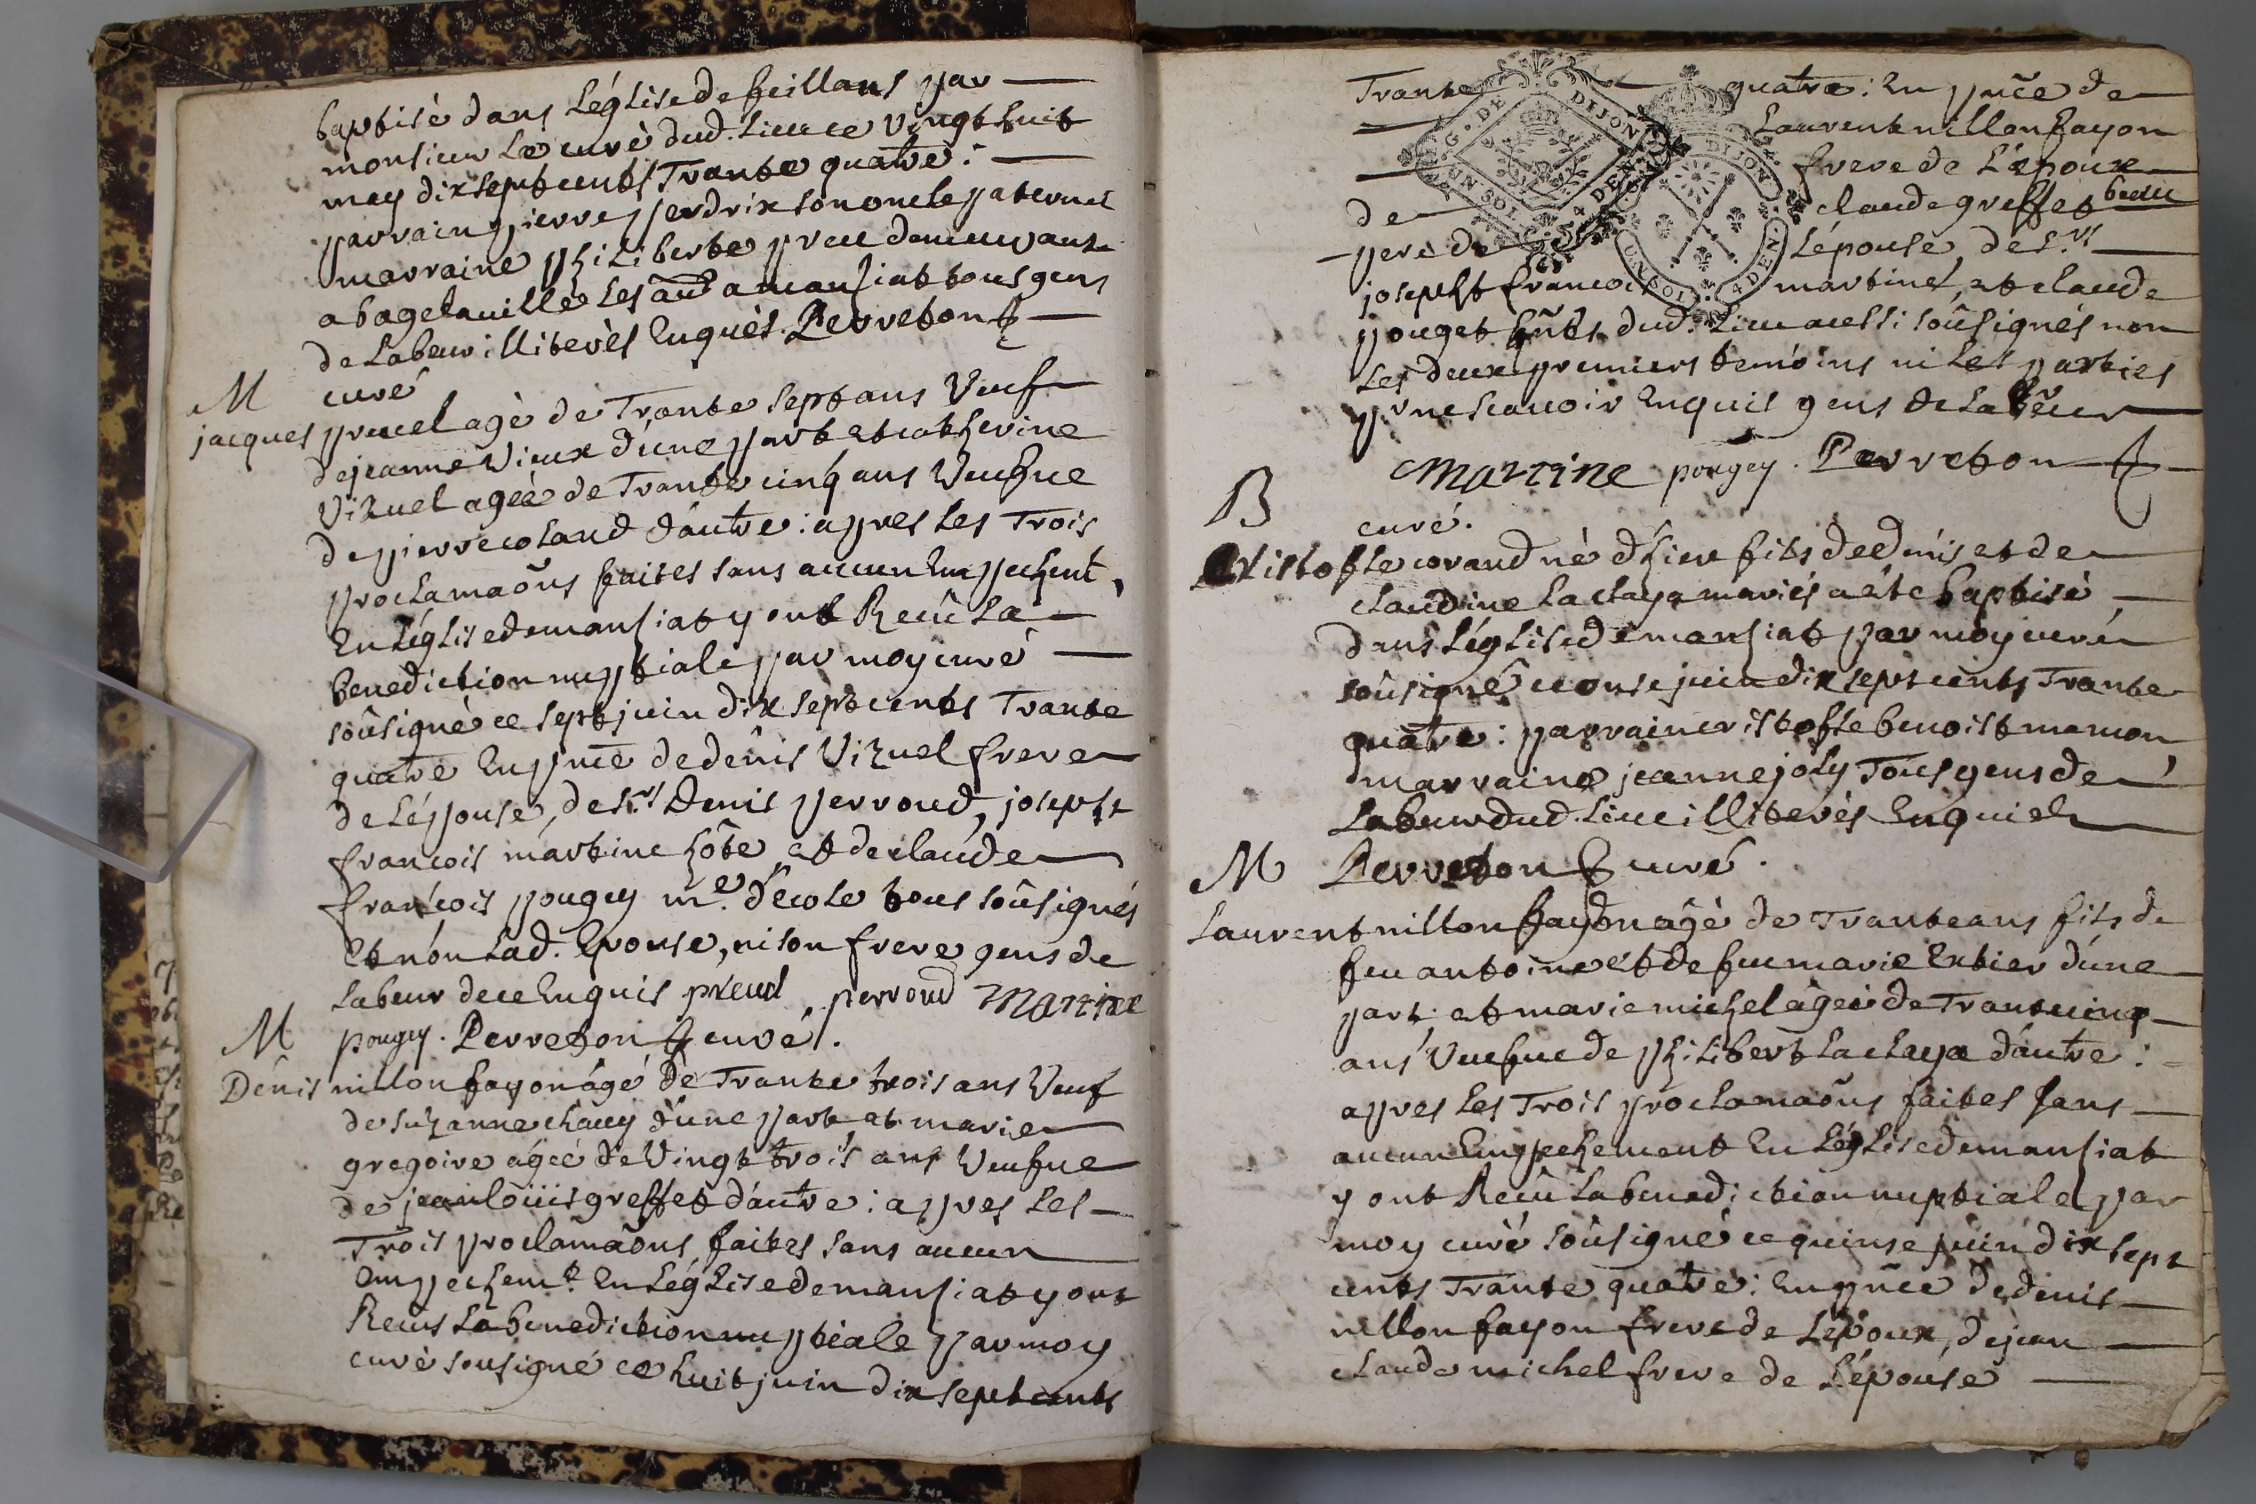 baptisé dans Léglise de feillans par
monsieur Le curé dud. Lieu ce Vingt huit
may dix sept cents Trante quatre :
parrain pierre perdrix son oncle paternel
marraine philiberte preu demeurante
a bagelaville les aud amansiat tous gens
de Labeur illiterès Enquès. Perreton
curé
M
jacques preuel agé de Trante sept ans Veuf
de jeanne Vieux d'une part et catherine
Vizuel ageé de Trante cinq ans Veufue
de pierre coland d'autre : apres Les Trois
proclamaõns faites sans aucun Empechent,
En Léglise demansiat y ont Reçû La
benediction nuptiale par moy curé
soûsigné ce sept juin dix sept cents Trante
quatre En pnce de denis Vizuel frere
de Lépouse, de Srs Denis perroud, joseph
françois martine hôte et de claude
françois pougey me. d'ecole tous soûsignés
Et non Lad. Epouse, ni son frere gens de
Labeur de ce Enquis preud perroud Martine
pougey. Perreton curé.
M
Denis nillon fayon âgé de Trante trois ans Veuf
de suzanne chaey d'une part et marie
gregoire agée de Vingt trois ans Veufue
de jean loüis greffet d'autre : apres Les
Trois proclamaõns faites sans aucun
Empechemt. En Léglise demansiat y ont
Recus La benediction nuptiale par moy
curé sousigné ce huit juin dix sept cents
Trante quatre : En pnce de
G. DE DIJON
UN SOL 4 DEN
DIJON
UN SOL 4 DEN
Laurent nillon fayon
frere de L'epoux
de claude greffet beau
pere de Lépouse, de Srs
joseph françois martine, et claude
pouget hñts dud. Lieu aussi soûsignés non
Les deux premiers temoins ni Les parties
pr ne scauoir Enquis gens de Labeur
Martine pougey. Perreton
curé.
B
Cristofle corand né d'hier fils de denis et de
claudine Laclaya mariés a été baptisé
dans Léglise de mansiat par moy curé
soûsigné ce onse juin dix sept cents Trante
quatre : parrain cristofle benoist mamon
marraine jeanne joly Tous gens de
Labeur dud. Lieu illiterès Enquis
Perreton curé.
M
Laurent nillon fayon âgé de Trante ans fils de
feu antoine et de feu marie Extier d'une
part et marie michel âgeé de Trante cinq
ans Veufue de philibert Laclaya d'autre :
apres Les Trois proclamaõns faites sans
aucun Empechement En Léglise demansiat
y ont Reçû La benediction nuptiale par
moy curé soûsigné ce quinse juin dix sept
cents Trante quatre : En pnce de denis
nillon fayon frere de Lepoux, de jean
claude michel frere de Lépouse